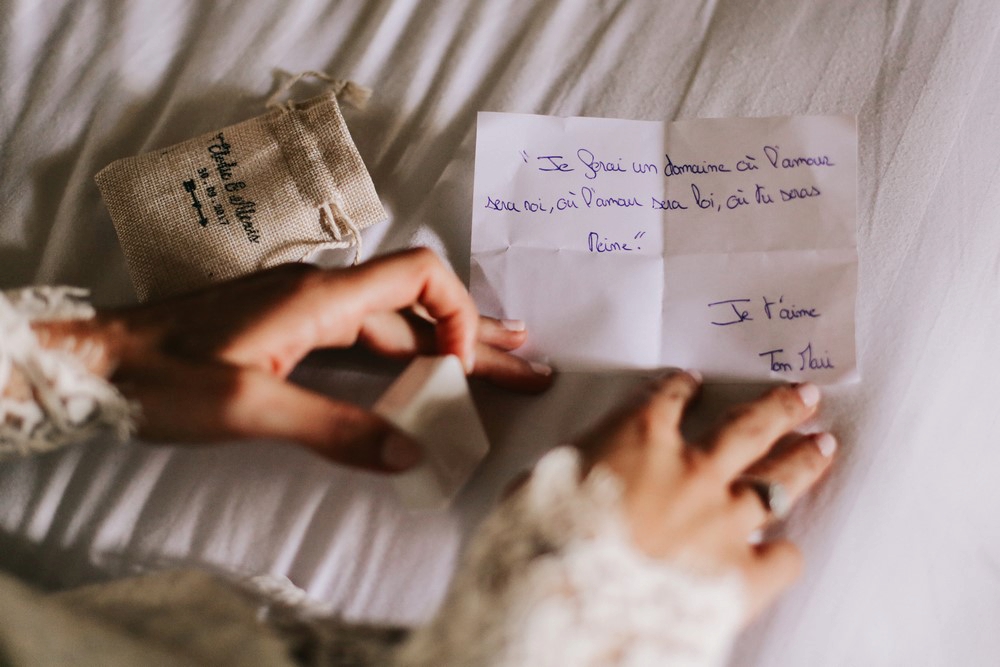 Elodie & Alexis
30.09.2017
" Je ferai un domaine où l'amour
sera roi, où l'amour sera loi, où tu seras
Reine"
Je t'aime
Ton Mari